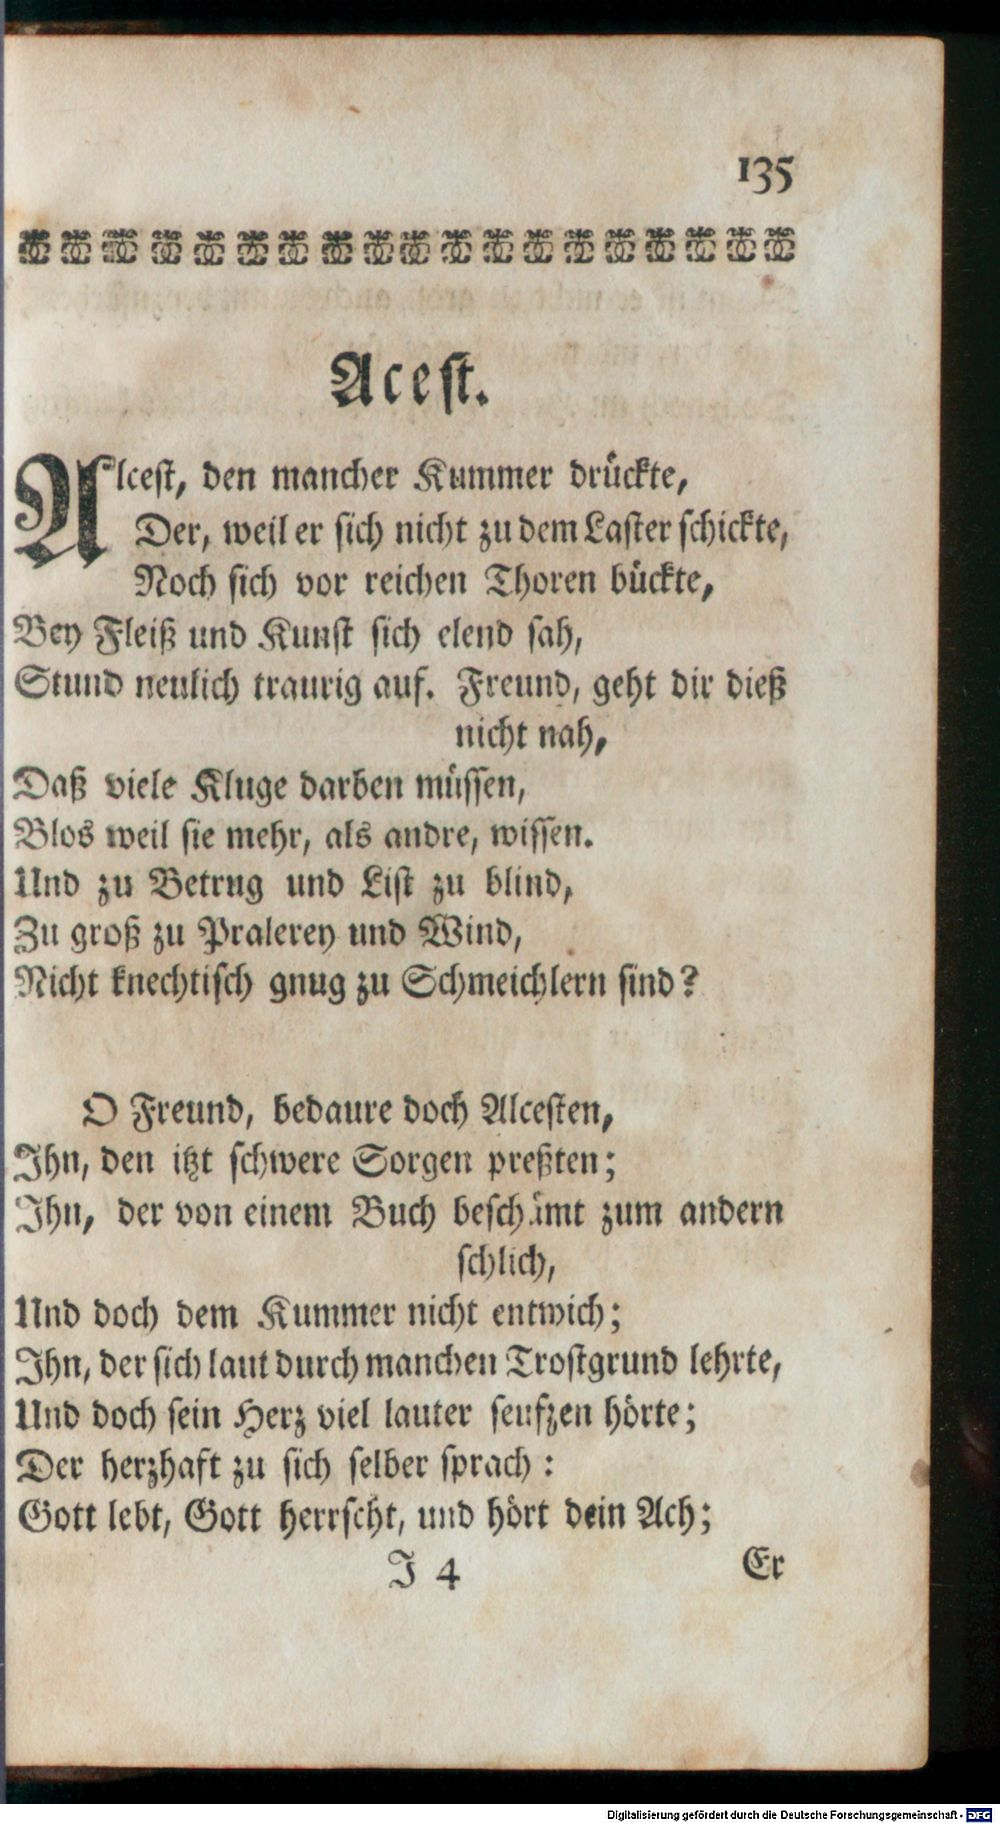 135
Acest.
Alcest, den mancher Kummer drückte,
Der, weil er sich nicht zu dem Laster schickte,
Noch sich vor reichen Thoren bückte,
Bey Fleiß und Kunst sich elend sah,
Stund neulich traurig auf. Freund, geht dir dieß
nicht nah,
Daß viele Kluge darben müssen,
Blos weil sie mehr, als andre, wissen.
Und zu Betrug und List zu blind,
Zu groß zu Pralerey und Wind,
Nicht knechtisch gnug zu Schmeichlern sind?
O Freund, bedaure doch Alcesten,
Ihn, den itzt schwere Sorgen preßten;
Ihn, der von einem Buch beschämt zum andern
schlich,
Und doch dem Kummer nicht entwich;
Ihn, der sich laut durch manchen Trostgrund lehrte,
Und doch sein Herz viel lauter seufzen hörte;
Der herzhaft zu sich selber sprach:
Gott lebt, Gott herrscht, und hört dein Ach;
J 4 Er
Digitalisierung gefördert durch die Deutsche Forschungsgemeinschaft - DFG